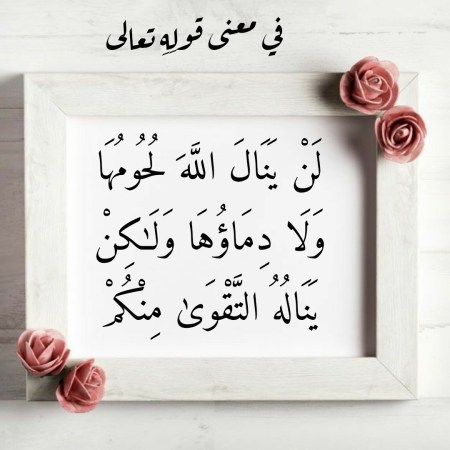 في معنى قوله تعالى
لَنْ يَنَالَ اللَّهَ لُحُومُهَا
وَلَا دِمَاؤُهَا وَلَٰكِنْ
يَنَالُهُ التَّقْوَىٰ مِنْكُمْ